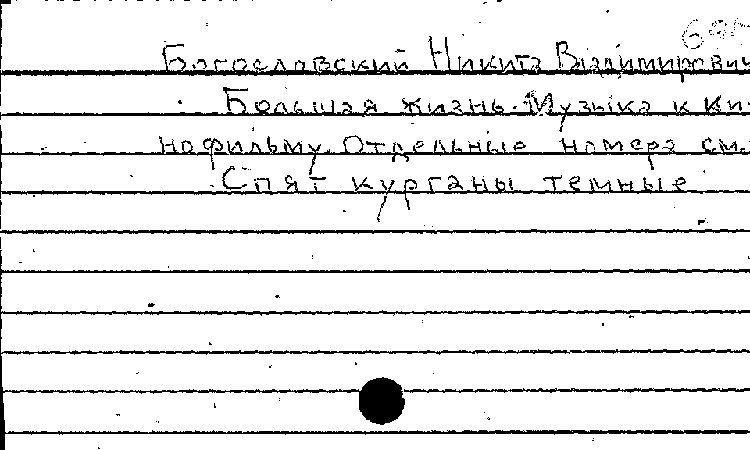 Богословский Никита Владимирович
Большая жизнь. Музыка к ки-
нофильму. Отдельные номера см.
Спят курганы темные